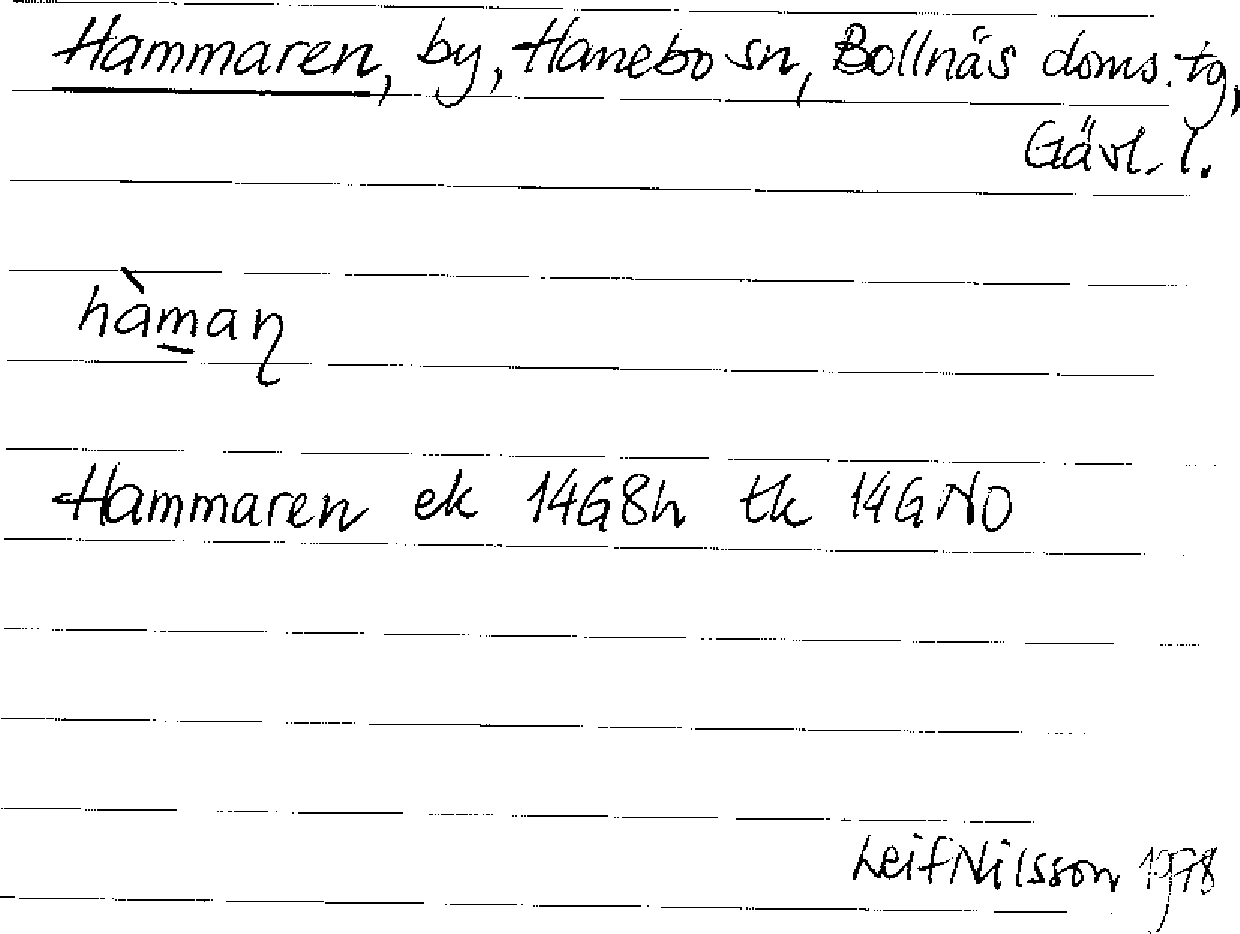 Hammaren, by, Hanebo sn, Bollnäs doms. tg,
Gävl. l.
hàm̱aɳ
Hammaren ek 14G8h tk 14GNO
Leif Nilsson 1978